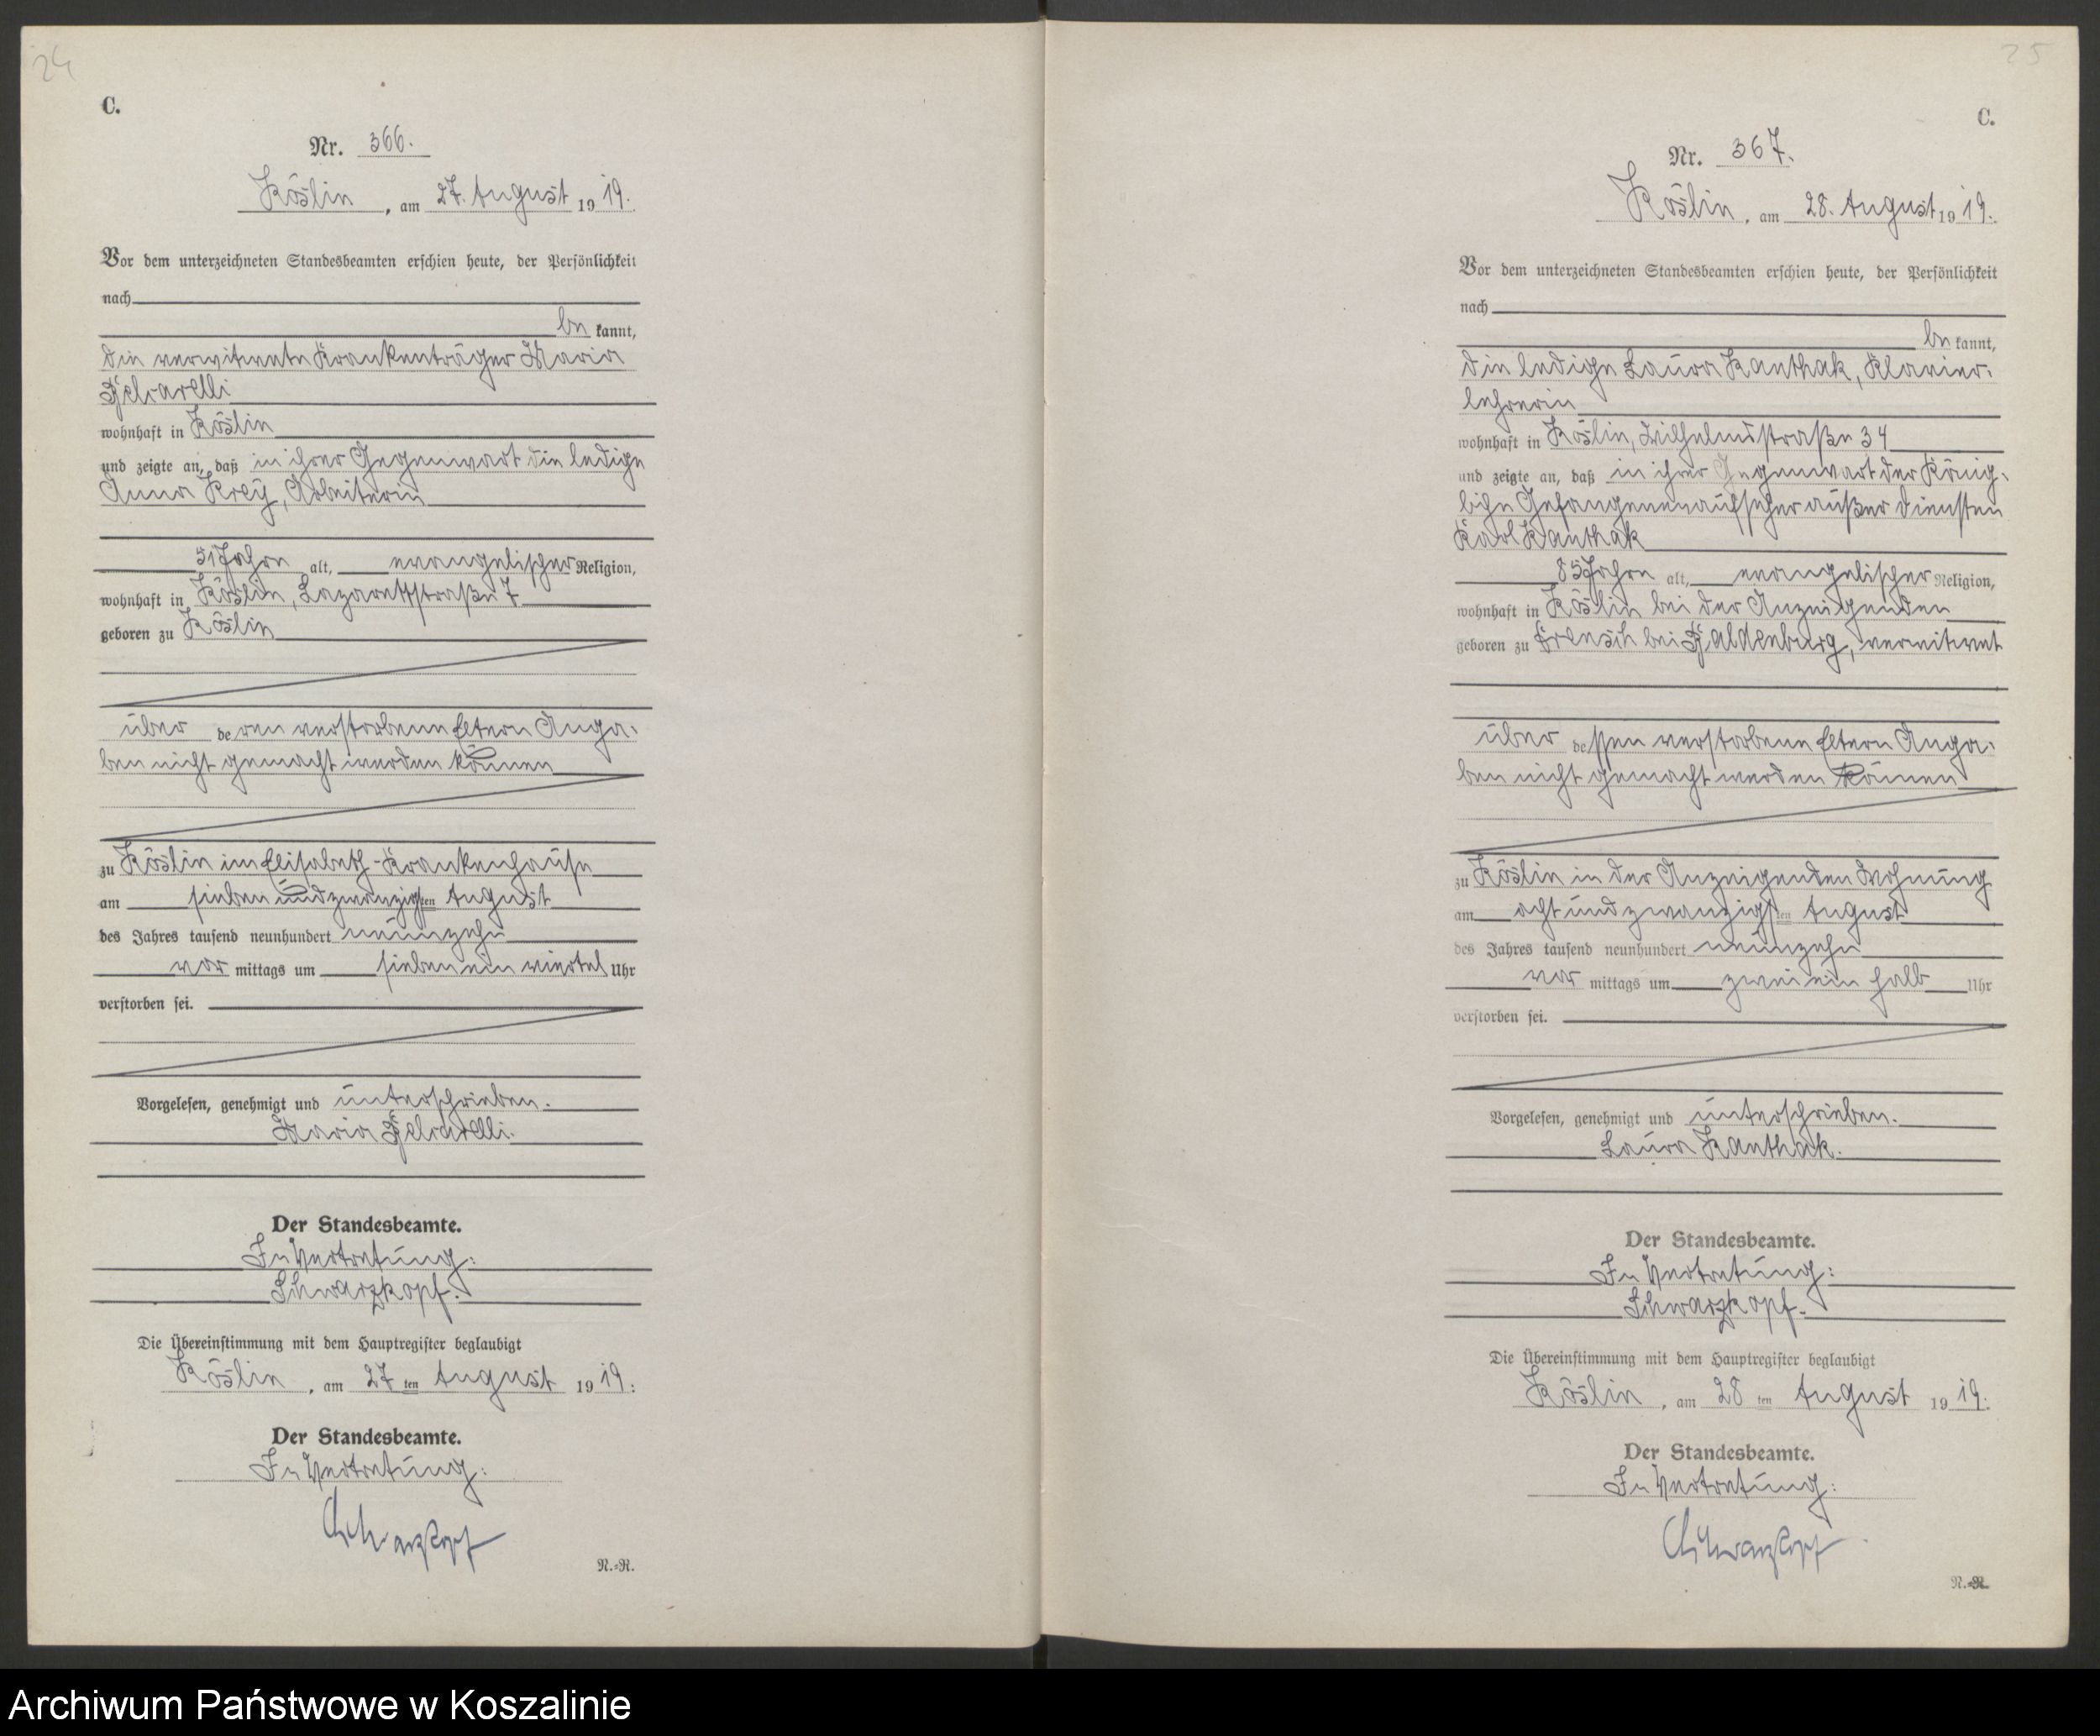 24
C.
Nr. 366.
Köslin, am 27. August 1919.
Vor dem unterzeichneten Standesbeamten erschien heute, der Persönlichkeit
nach
be kannt,
die verwitwete Krankenträger Maria
wohnhaft in Köslin
und zeigte an, daß in ihrer Gegenwart die ledige
Anna Krey, Arbeiterin
51 Jahre alt, evangelischer Religion,
wohnhaft in Köslin, Lazarettstraße 7
geboren zu Köslin
über deren verstorbene Eltern Anga-
ben nicht gemacht werden können
zu Köslin im Elisabeth-Krankenhause
am siebenundzwanzigsten August
des Jahres tausend neunhundert neunzehn
vor mittags um siebeneinviertel Uhr
verstorben sei.
Vorgelesen, genehmigt und unterschrieben.
Maria
Der Standesbeamte.
In Vertretung:
Schwarzkopf.
Die Übereinstimmung mit dem Hauptregister beglaubigt
Köslin, am 27ten August 1919.
Der Standesbeamte.
In Vertretung:
Schwarzkopf
N.=N.
25
C.
Nr. 367.
Köslin, am 28. August 1919.
Vor dem unterzeichneten Standesbeamten erschien heute, der Persönlichkeit
nach
be kannt,
die ledige Laura Kanthak, Klavier-
lehrerin
wohnhaft in Köslin, Wilhelmstraße 34
und zeigte an, daß in ihrer Gegenwart der König-
liche Gefangenenaufseher außer Diensten
Karl Kanthak
85 Jahre alt, evangelischer Religion,
wohnhaft in Köslin bei der Anzeigenden
geboren zu bei Baldenburg, verwitwet
über dessen verstorbene Eltern Anga-
ben nicht gemacht werden können
zu Köslin in der Anzeigenden Wohnung
am achtundzwanzigsten August
des Jahres tausend neunhundert neunzehn
vor mittags um zweieinhalb Uhr
verstorben sei.
Vorgelesen, genehmigt und unterschrieben.
Laura Kanthak.
Der Standesbeamte.
In Vertretung:
Schwarzkopf.
Die Übereinstimmung mit dem Hauptregister beglaubigt
Köslin, am 28ten August 1919.
Der Standesbeamte.
In Vertretung:
Schwarzkopf
N.=N.
Archiwum Państwowe w Koszalinie